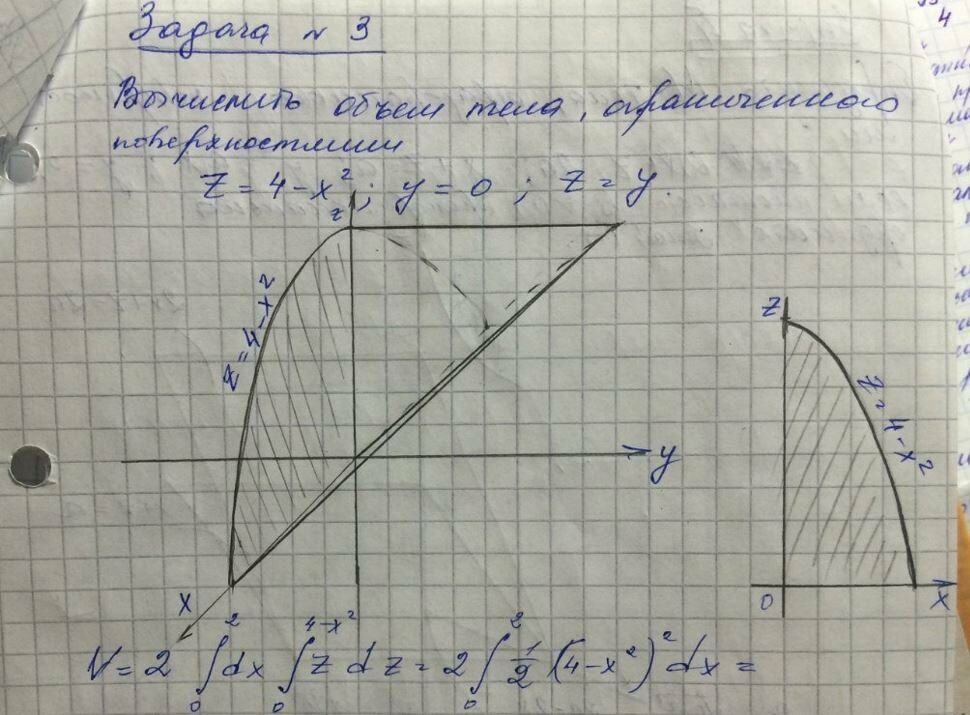 Задача N 3
Вычислить объем тела, ограниченного
поверхностями
Z = 4 - x²; y = 0; Z = y.
z
z = 4 - x²
y
x
Z
z = 4 - x²
0
x
V = 2 ∫₀² dx ∫₀⁴⁻ˣ² z dz = 2 ∫₀² 1/2 (4 - x²)² dx =
4